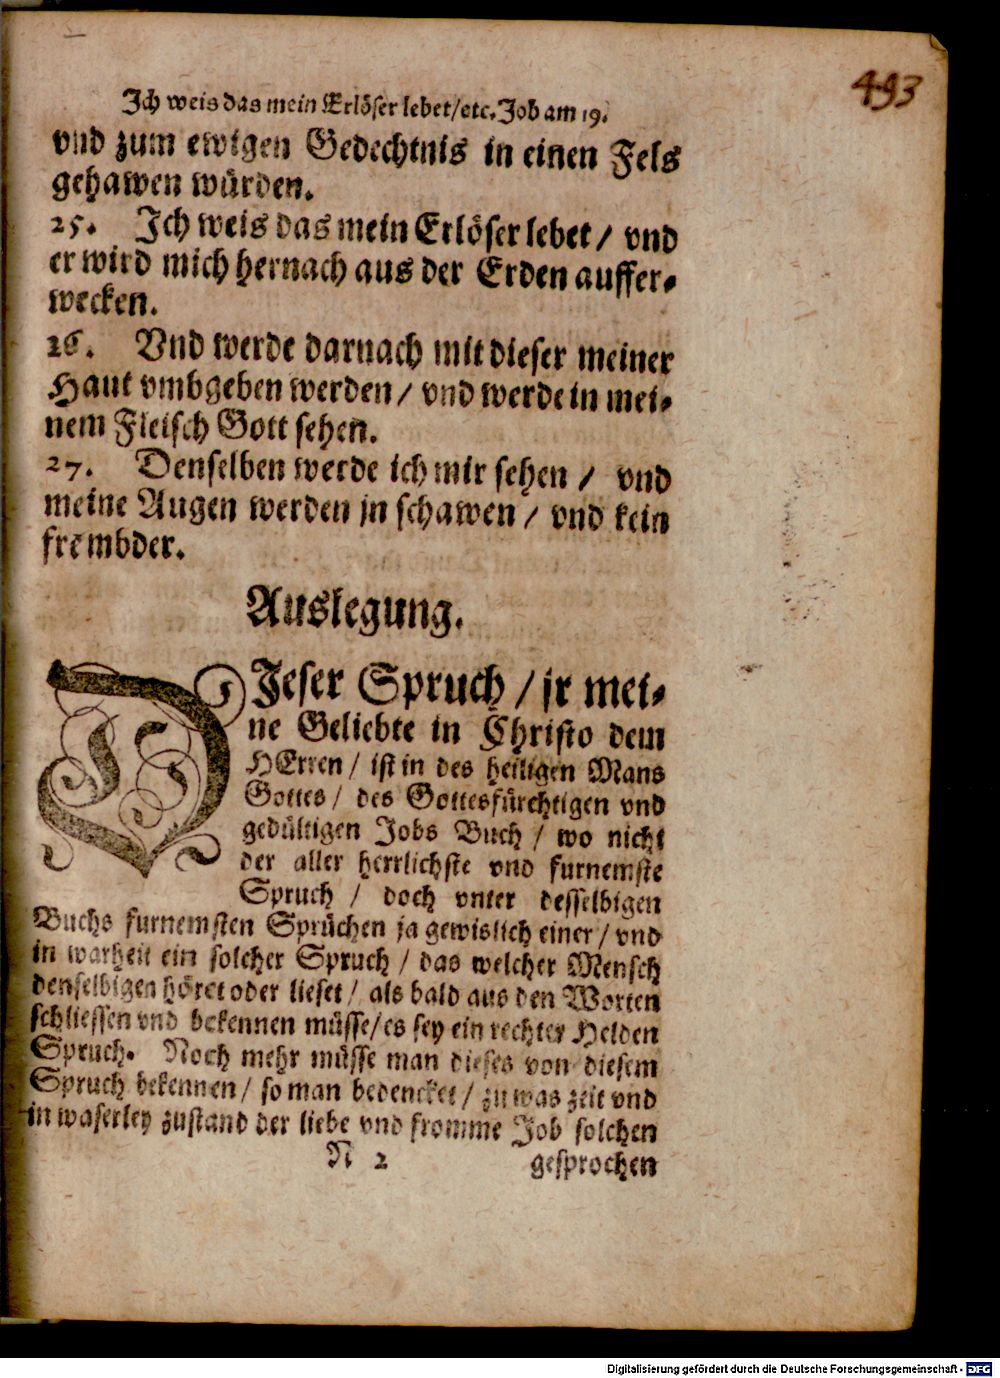 493
Ich weis das mein Erlöser lebet/etc. Job am 19.
vnd zum ewigen Gedechtnis in einen Fels
gehawen würden.
25. Ich weis das mein Erlöser lebet / vnd
er wird mich hernach aus der Erden auffer⸗
wecken.
26. Vnd werde darnach mit dieser meiner
Haut vmbgeben werden / vnd werde in mei⸗
nem Fleisch Gott sehen.
27. Denselben werde ich mir sehen / vnd
meine Augen werden jn schawen / vnd kein
frembder.
Auslegung.
DIeser Spruch / jr mei⸗
ne Geliebte in Christo dem
HErren / ist in des heiligen Mans
Gottes / des Gottesfürchtigen vnd
gedültigen Jobs Buch / wo nicht
der aller herrlichste vnd furnemste
Spruch / doch vnter desselbigen
Buchs furnemsten Sprüchen ja gewislich einer / vnd
in warheit ein solcher Spruch / das welcher Mensch
denselbigen höret oder lieset / als bald aus den Worten
schliessen vnd bekennen müsse/ es sey ein rechter Helden
Spruch. Noch mehr müsse man dieses von diesem
Spruch bekennen / so man bedencket / zu was zeit vnd
in waserley zustand der liebe vnd fromme Job solchen
N 2 gesprochen
Digitalisierung gefördert durch die Deutsche Forschungsgemeinschaft - DFG